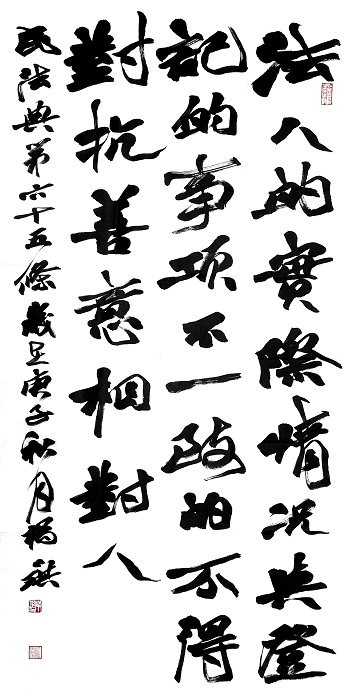 法人的實際情况与登
記的事项不一致的不得
對抗善意相對人
民法典第六十五條歲在庚子秋月楊